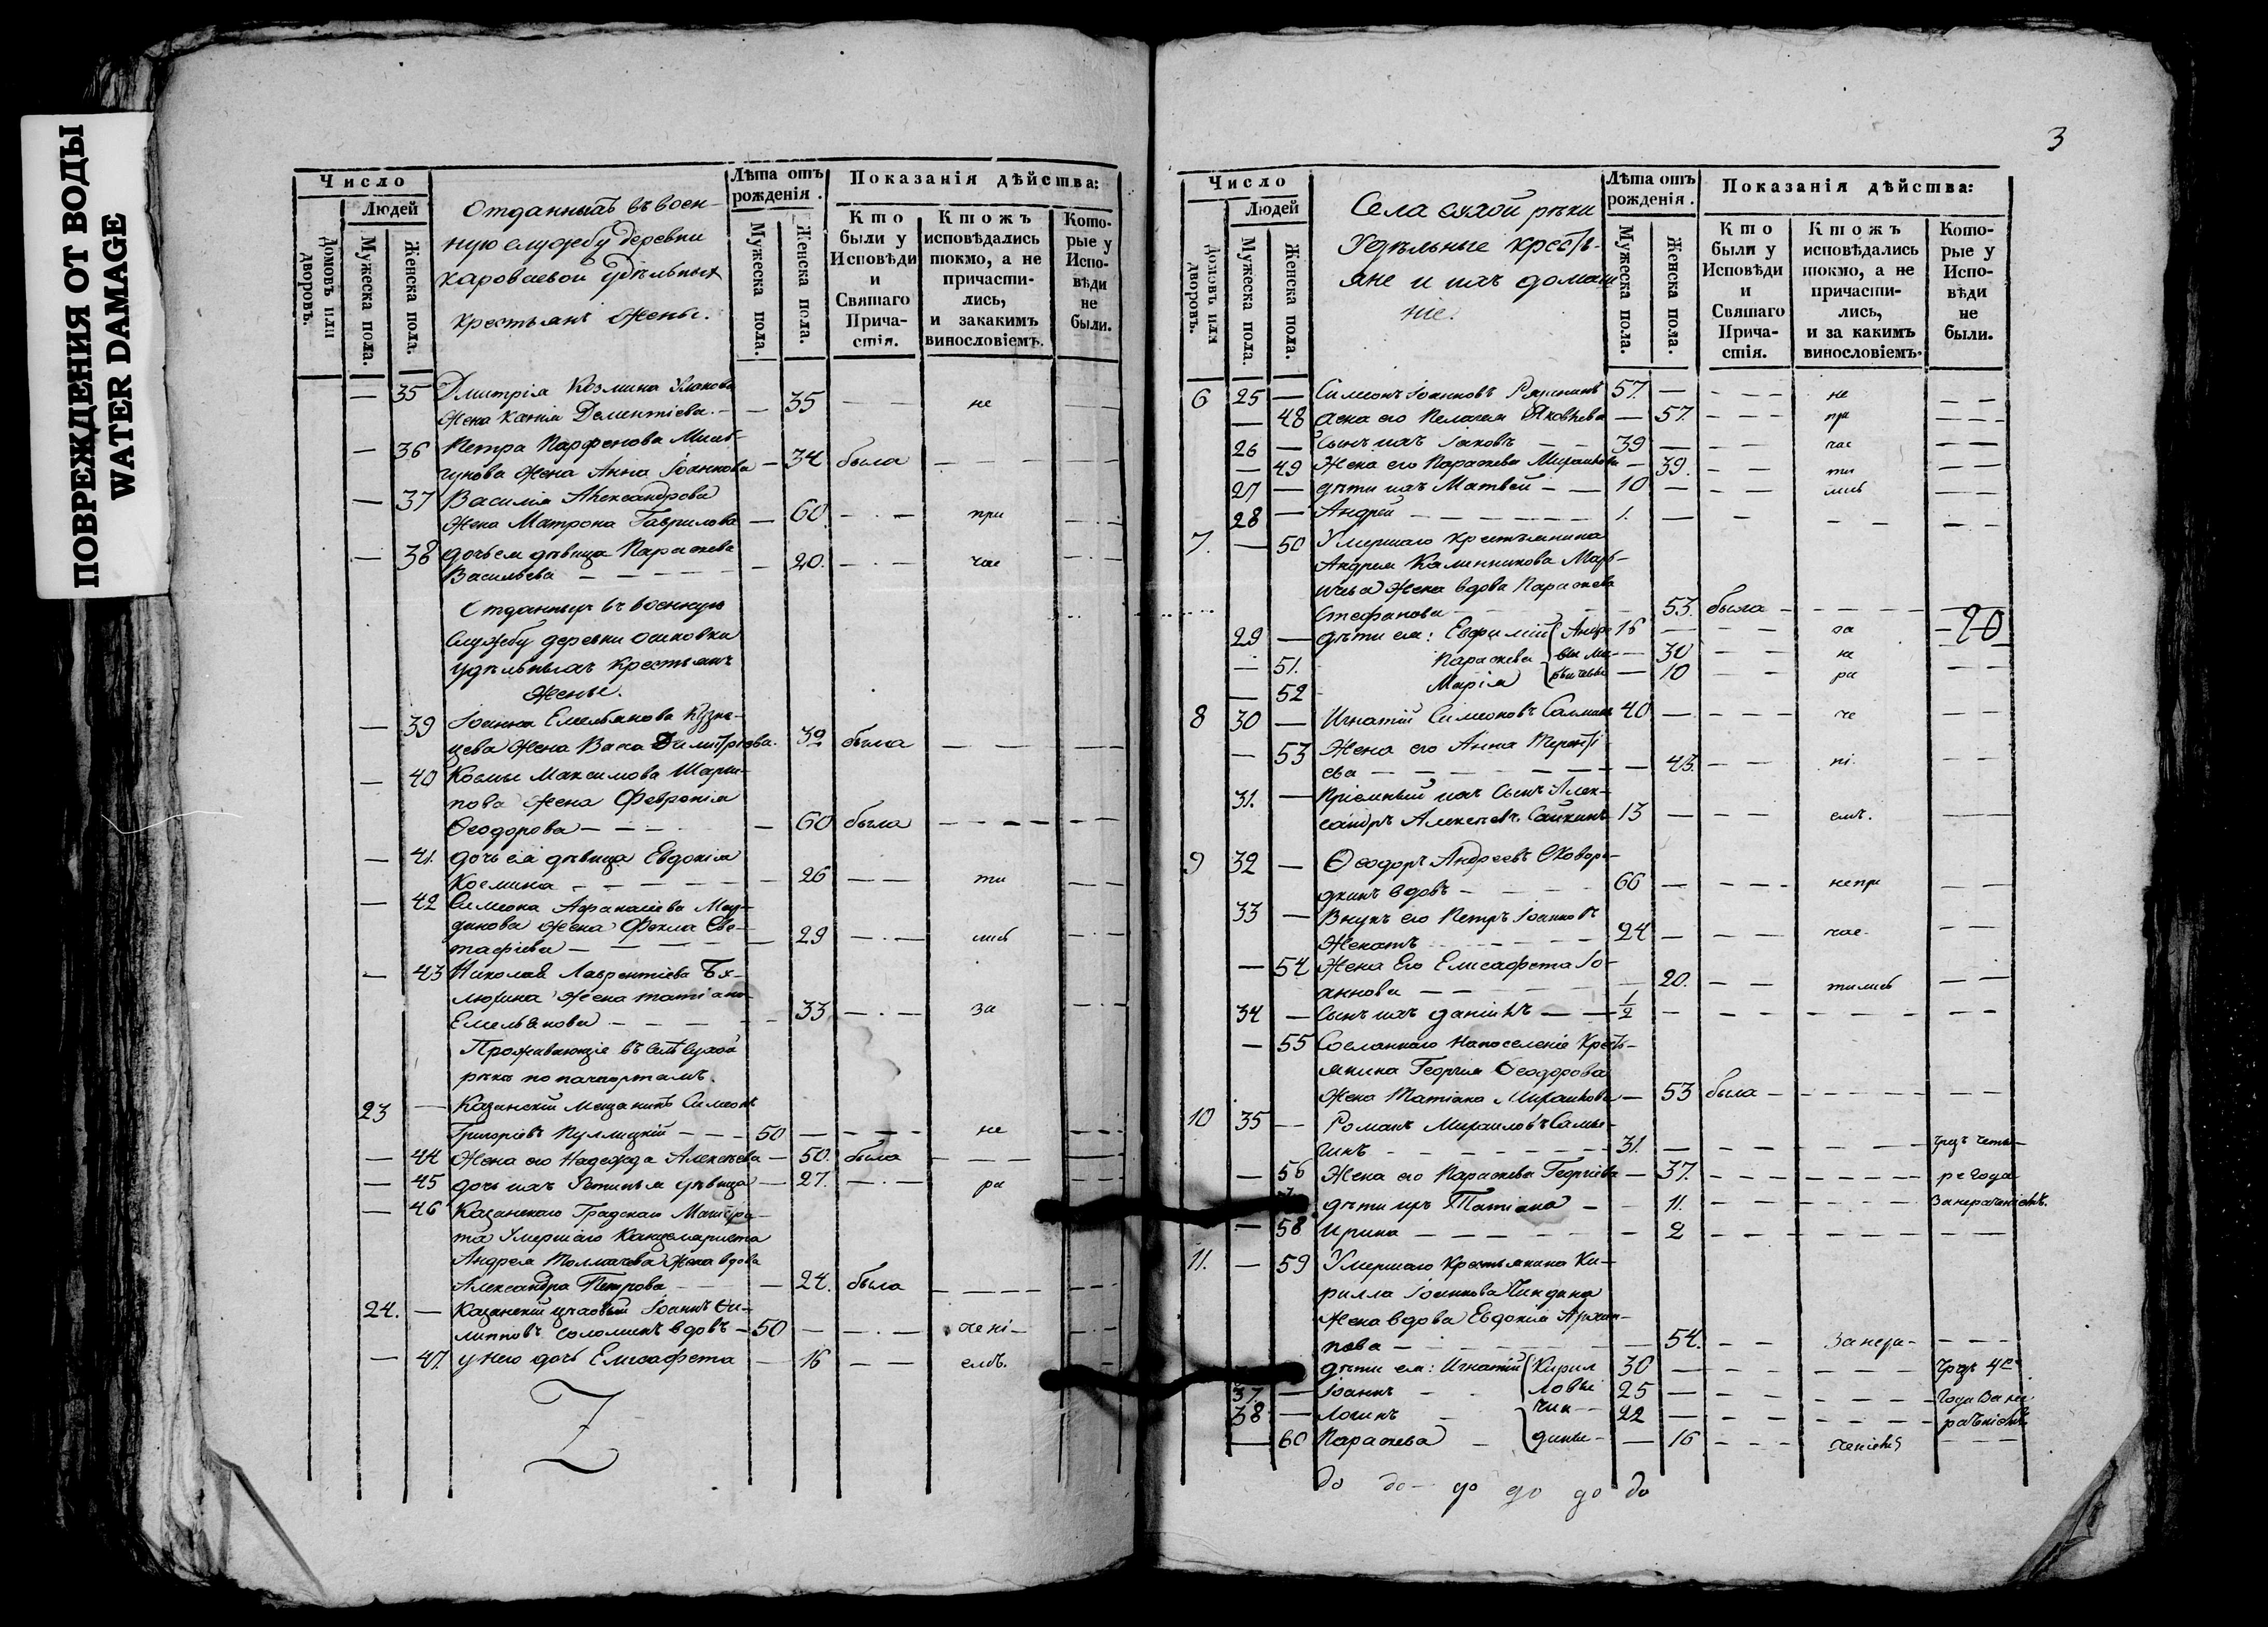 ПОВРЕЖДЕНИЯ ОТ ВОДЫ
WATER DAMAGE
Число
Людей
Домовъ или дворовъ.
Мужеска пола.
Женска пола.
Отданныхъ въ воен-
ную службу деревни
Кароваевой удѣльныхъ
крестьянъ жены.
Лѣта отъ рожденія.
Мужеска пола.
Женска пола.
Показанія дѣйства:
Кто были у Исповѣди и Святаго Прича-стія.
Ктожъ исповѣдались токмо, а не причасти-лись, и закакимъ винословіемъ.
Кото-рые у Испо-вѣди не были.
— 35 Дмитрія Козмина
жена Ксенія Дементіева — 35 — — не —
— 36 Петра Парфенова
жена Анна Іоаннова — 34 была — — —
— 37 Василія Александрова
жена Матрона Гаврилова — 60 — — при — —
— 38 дочь ея дѣвица Параскева
Васильева — — — — 20. — — час — —
Отданныхъ въ военную
службу деревни
удѣльныхъ крестьянъ
жены.
— 39 Іоанна Емельянова Кузне-
цова жена Васса Димитріева. 39 была — — —
— 40 Космы Максимова Шари-
пова жена Февронія
Ѳеодорова — — — 60 была — — — —
— 41. дочь ея дѣвица Евдокія
Космина — — — — 26 — — ти — —
— 42 Симеона Афанасіева
жена Фекла Евс-
тафіева — — — 29 — — лись — —
— 43 Николая Лаврентіева
жена Татіана
Емельянова — — — 33 — — за — —
Проживающіе въ селѣ Сухой
рѣкѣ по пачпортамъ.
23 — Казанскій мещанинъ Симеонъ
Григоріевъ — — 50 — — — не — —
— 44 жена его Надежда Алексѣева — 50. была — — — —
— 45 дочь ихъ Устинья дѣвица — 27. — — ра — —
— 46 Казанскаго Градскаго Магистра-
та умершаго канцеляриста
Андрея Толмачева жена вдова
Александра Петрова — 24. была — — — —
24. — Казанскій Іоаннъ Фи-
липповъ Соломинъ вдовъ — 50 — — — чені- — —
— 47. у него дочь Елисафета — 16 — — емъ. —
3
Число
Людей
Домовъ или дворовъ.
Мужеска пола.
Женска пола.
Села сухой рѣки
Удѣльные кресть-
яне и ихъ домаш-
ніе.
Лѣта отъ рожденія.
Мужеска пола.
Женска пола.
Показанія дѣйства:
Кто были у Исповѣди и Святаго Прича-стія.
Ктожъ исповѣдались токмо, а не причасти-лись, и за какимъ винословіемъ.
Кото-рые у Испо-вѣди не были.
6 25 — Симеонъ Іоанновъ 57. — — — не — —
— 48 жена его Пелагея Яковлева — 57. — — при — —
26 — сынъ ихъ Іаковъ — — 39 — — — час — —
— 49 жена его Параскева Михаилова — 39. — — ти — —
27 — дѣти ихъ Матвей — — 10 — — — лись — —
28 — Андрей — — — — 1. — — — — —
7. — 50 Умершаго крестьянина
Андрея Калинникова
жена вдова Параскева
Стефанова — — — 53. была — — — —
20
29 — дѣти ея: Евфимій 16 — — — за — —
— 51. Параскева — 30 — — не — —
— 52 Марія — 10 — — ра — —
8 30 — Игнатій Симеоновъ 40 — — — че — —
— 53 жена его Анна Теренті-
ева — — — — 43. — — ні. — —
31. — пріемный ихъ сынъ Алек-
сандръ Алексѣевъ 13 — — — емъ. —
9 32 — Ѳеодоръ Андреевъ Сковоро-
дкинъ вдовъ — — 66 — — — непри — —
33 — Внукъ его Петръ Іоанновъ
женатъ — — 24 — — — час- — —
— 54 жена его Елисафета Іо-
аннова — — — 20. — — тились — —
34 — сынъ ихъ Даніилъ — — 1/2 — — — — —
— 55 Сосланнаго на поселеніе кресть-
янина Георгія Ѳеодорова
жена Татіана Михаилова — 53 была — — — —
10 35 — Романъ Михаиловъ
— — — 31. — — — — чрезъ четы-
— 56 жена его Параскева Георгіева — 37. — — — — ре года
дѣти ихъ Татіана — — 11. — — — — за нераченіемъ.
— 58 Ирина — — — — 2 — — — — —
11. — 59 Умершаго крестьянина Ки-
рилла Іоаннова Чиндина
жена вдова Евдокія Архип-
пова — — — 54. — — за нера- — —
дѣти ея: Игнатій Кирил 30 — — — — чрезъ 4ре
37. — Іоаннъ — ловы 25 — — — — года за не
38 — Логинъ — Чин- 22 — — — — раченіемъ
— 60 Параскева — дины — 16 — — ченіемъ —
до до до до до до